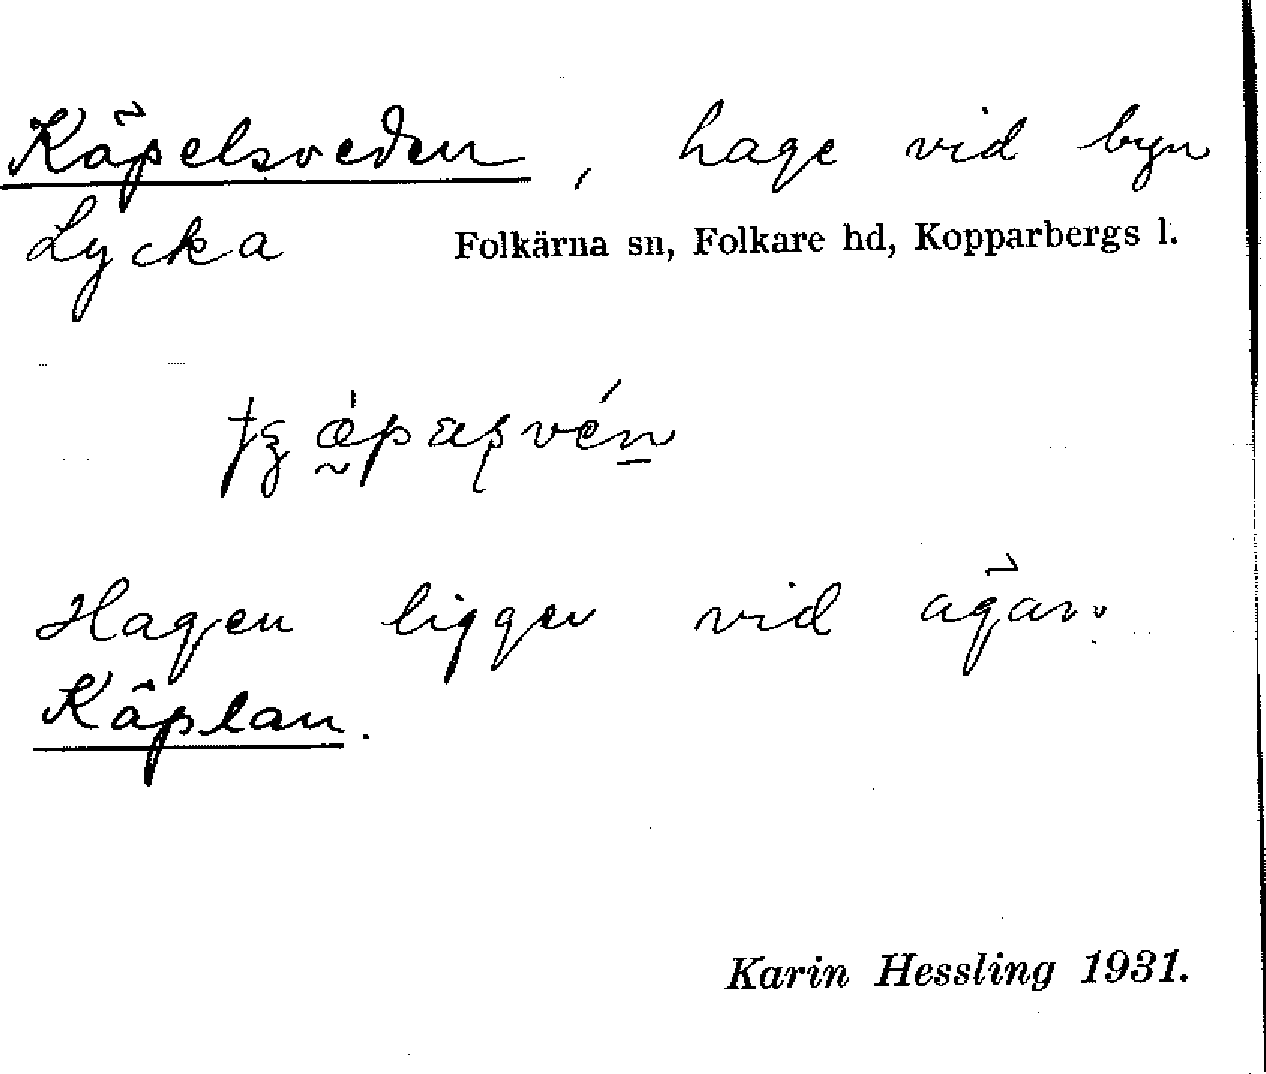 Käpelsveden, hage vid byn
Lycka Folkärna sn, Folkare hd, Kopparbergs l.
Hagen ligger vid ägan
Käplan.
Karin Hessling 1931.